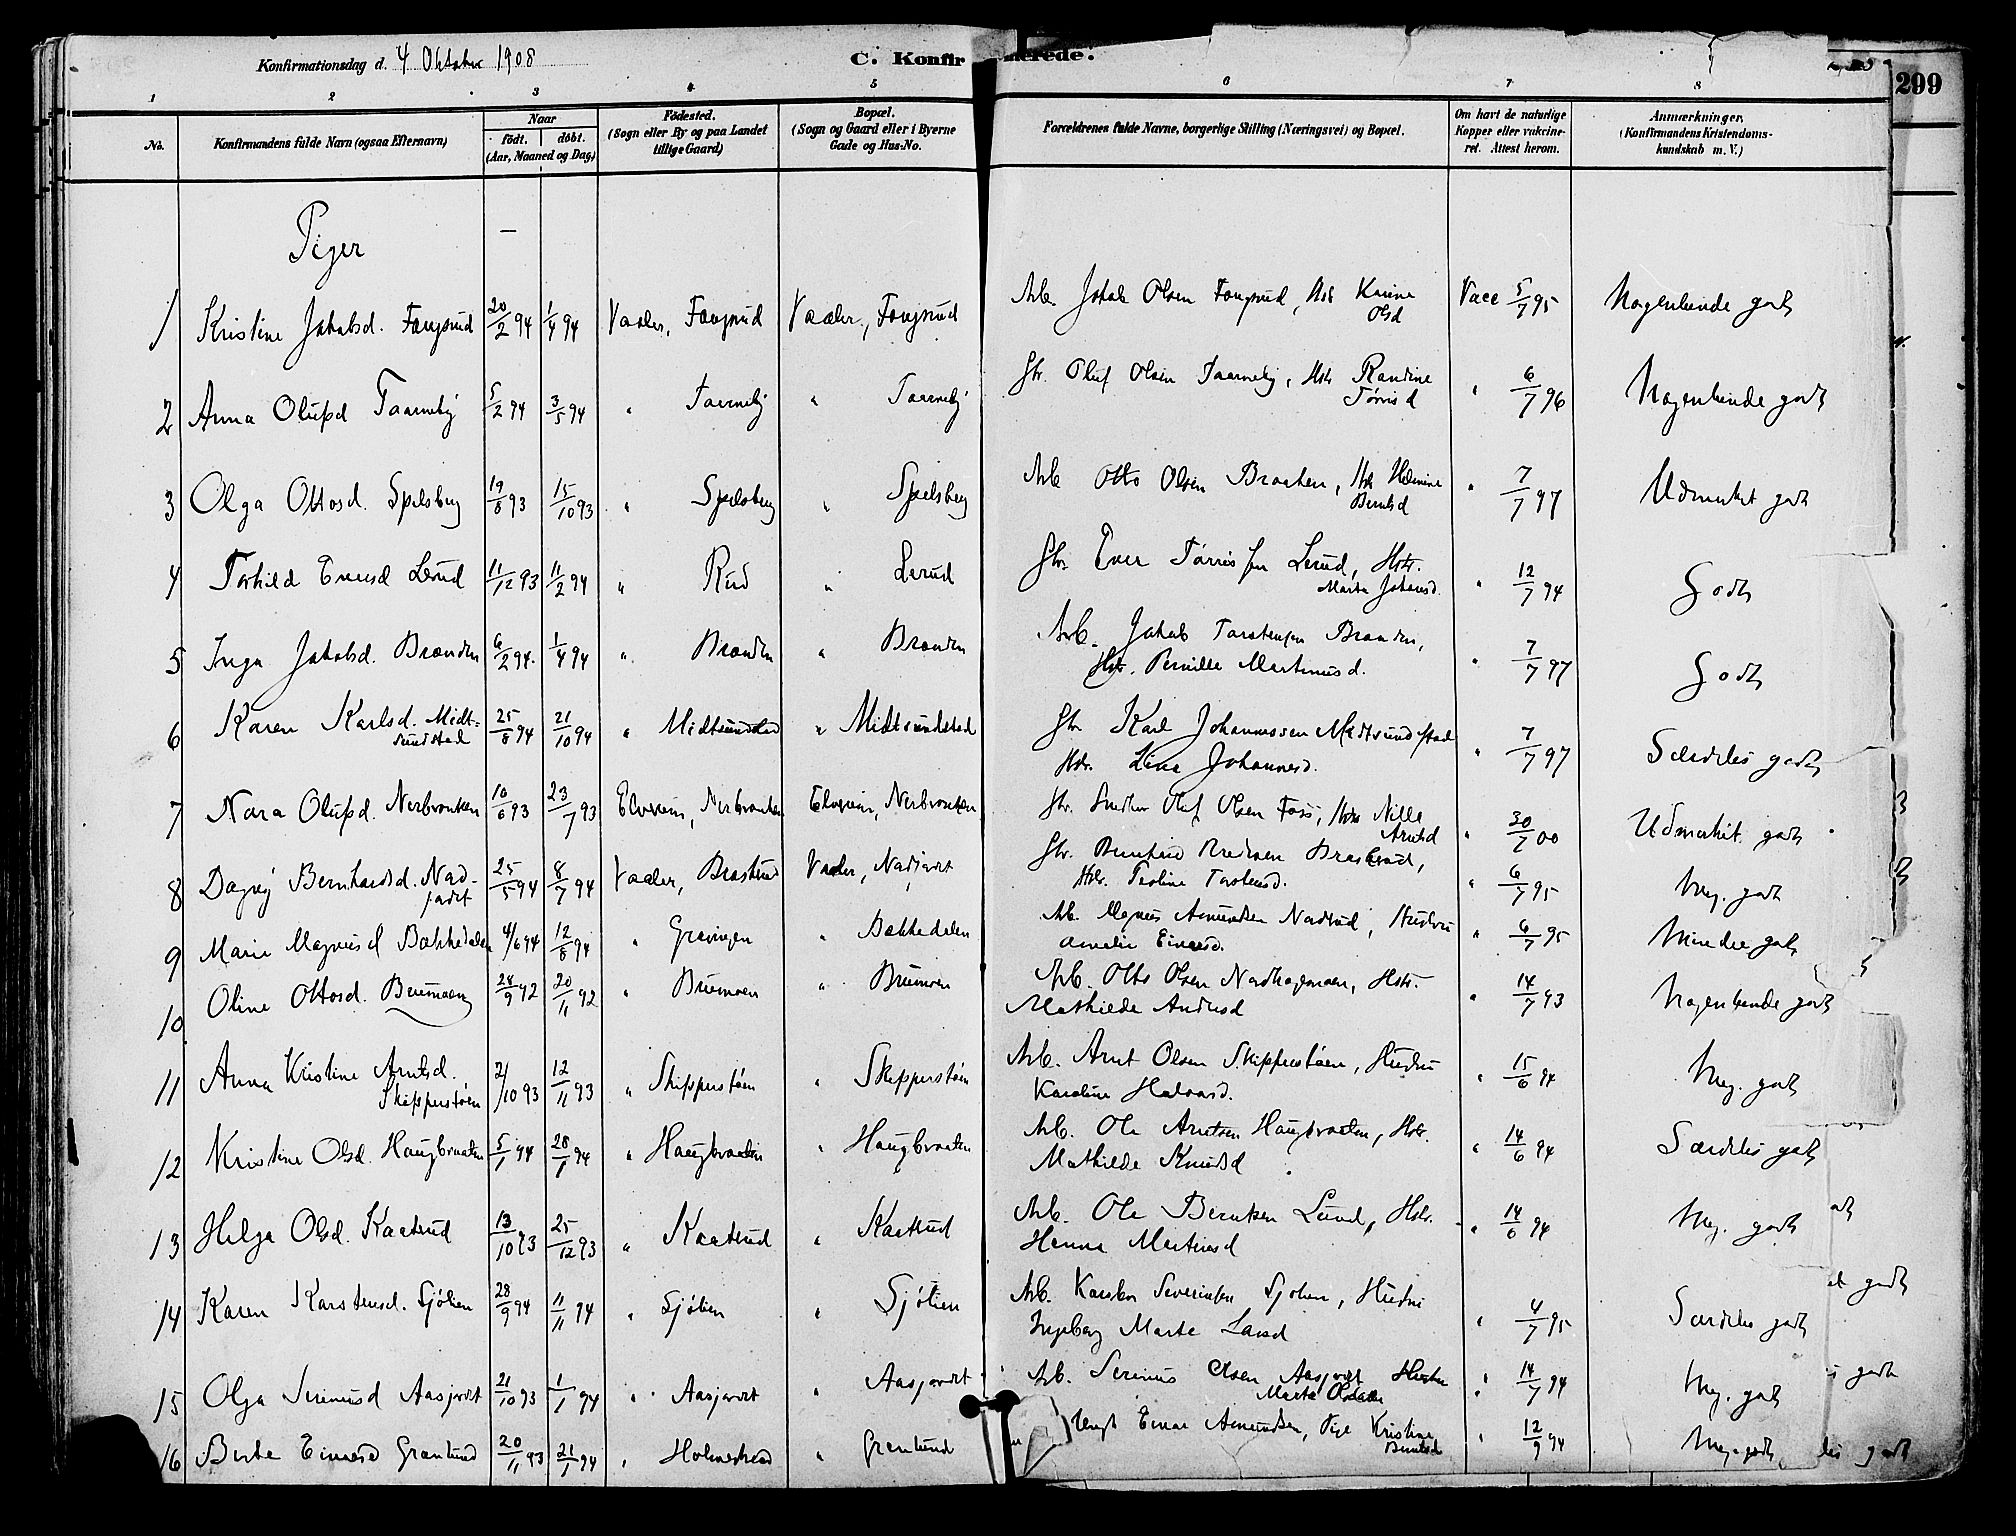 Konfirmationsdag d. 4 Oktober 1908
C. Konfirmerede.
299
1 2 3 4 5 6 7 8
No.
Konfirmandens fulde Navn (ogsaa Efternavn)
Naar
født. døbt.
(Aar, Maaned og Dag.)
Fødested.
(Sogn eller By og paa Landet
tillige Gaard.)
Bopæl.
(Sogn og Gaard eller i Byerne
Gade og Hus-No.
Forældrenes fulde Navne, borgerlige Stilling (Næringsvei) og Bopæl.
Om havt de naturlige
Kopper eller vakcine-
ret. Attest herom.
Anmærkninger.
(Konfirmandens Kristendoms-
kundskab m. V.)
Piger
1 Kristine Jakobsd. Fangsrud 20/2 94 1/4 94 Vaaler, Fangsrud Vaaler, Fangsrud Arb. Jakob Olsen Fangsrud, Hst Karine Olsd Vacc 5/7 95 Nogenlunde godt
2 Anna Olufsd Taarneby 5/2 94 3/5 94 " Taarneby " Taarneby Gbr. Oluf Olsen Taarneby, Hstr Randine Tørrisd " 6/7 96 Nogenlunde godt
3 Olga Ottosd. Spelsberg 19/8 93 15/10 93 " Spelsberg " Spelsberg Arb Otto Olsen Braaten, Hst Helmine Berntsd " 7/7 97 Udmerket godt
4 Torhild Evensd Lerud 11/12 93 11/2 94 " Rud " Lerud Gbr. Even Tørrissen Lerud, Hstr. Marte Johansd. " 12/7 94 Godt
5 Inga Jakobsd. Brænden 6/2 94 1/4 94 " Brænden " Brænden Arb. Jakob Torstensen Brænden,
Hstr. Pernille Martinusd. " 7/7 97 Godt
6 Karen Karlsd. Midt-
sundstad 25/8 94 21/10 94 " Midtsundstad " Midtsundstad Gbr Karl Johannessen Midtsundstad
Hstr. Lina Johannesd. " 7/7 97 Særdeles godt
7 Nora Olufsd. Nerbraaten 10/6 93 23/7 93 Elverum, Nerbraaten Elverum, Nerbraaten Gbr. Snedker Oluf Olsen Foss, Hstr Nille Arntsd " 30/7 00 Udmerket godt
8 Dagny Bernhardsd. Nord- 25/5 94 8/7 94 Vaaler, Braskerud Vaaler, Gbr. Bernhard Braskerud,
Hstr. Torstensd. " 6/7 95 Meg. godt
9 Marie Magnusd Bakkedalen 4/6 94 12/8 94 " " Bakkedalen Arb. Magnus Amundsen Nordrud, Hustru
Amelie Einarsd. " 6/7 95 Mindre godt
10 Oline Ottosd. Brumoen 24/9 92 20/11 92 " Brumoen " Brumoen Arb. Otto Olsen Nordhagamoen, Hstr.
Mathilde Andersd " 14/7 93 Nogenlunde godt
11 Anna Kristine Arntsd.
Skipperstøen 2/10 93 12/11 93 " Skipperstøen " Skipperstøen Arb. Arnt Olsen Skipperstøen, Hustru
Karoline Halvorsd. " 15/6 94 Meg. godt
12 Kristine Olsd. Haugbraaten 5/1 94 28/1 94 " Haugbraaten " Haugbraaten Arb. Ole Arntsen Haugbraaten, Hstr.
Mathilde Knudsd " 14/6 94 Særdeles godt
13 Helga Olsd. Kaatrud 13/10 93 25/12 93 " Kaatrud " Kaatrud Arb. Ole Berntsen Lund, Hstr.
Hanna Martinsd " 14/6 94 Meg. godt
14 Karen Karstensd. Sjølien 28/9 94 11/11 94 " Sjølien " Sjølien Arb. Karsten Severinsen Sjølien, Hustru
Ingeborg Marte Larsd " 4/7 95 Særdeles godt
15 Olga Serinusd Aasjordet 21/10 93 1/1 94 " Aasjordet " Aasjordet Arb. Serinus Olsen Aasjordet Hustru
Marte " 14/7 94 Meg. godt
16 Berte Einarsd Granlund 20/11 93 21/1 94 " " Granlund Ungk Einar Amundsen, Pige Kristine Berntsd " 12/9 94 Meg. godt